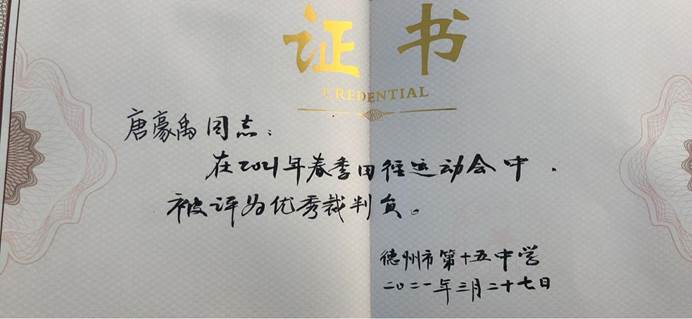 证书
CREDENTIAL
唐豪禹同志：
在2021年春季田径运动会中，
被评为优秀裁判员。
德州市第十五中学
二〇二一年三月二十七日